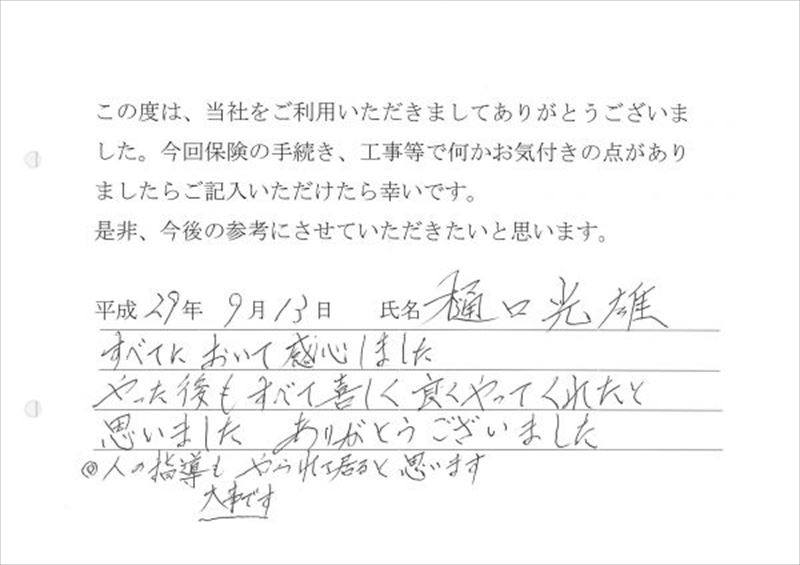 この度は、当社をご利用いただきましてありがとうございま
した。今回保険の手続き、工事等で何かお気付きの点があり
ましたらご記入いただけたら幸いです。
是非、今後の参考にさせていただきたいと思います。
平成 29年 9月 13日 氏名 樋口光雄
すべてにおいて感心しました
やった後もすべて喜しく良くやってくれたと
思いました ありがとうございました
◎人の指導も やられて居ると思います
大事です